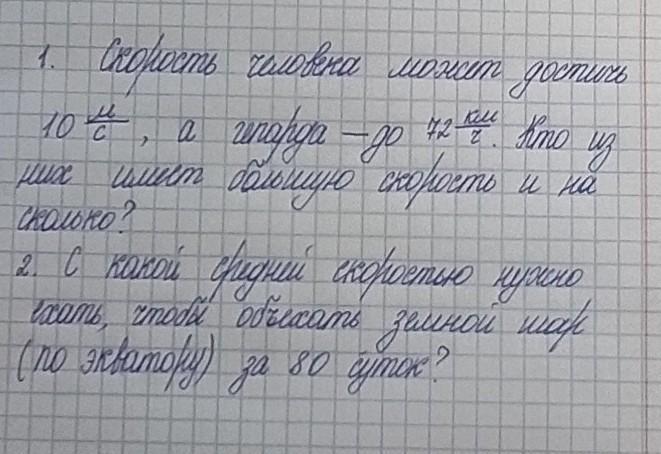 1. Скорость человека может достичь
10 м/с, а гепарда — до 72 км/ч. Кто из
них имеет большую скорость и на
сколько?
2. С какой средней скоростью нужно
ехать, чтобы объехать земной шар
(по экватору) за 80 суток?